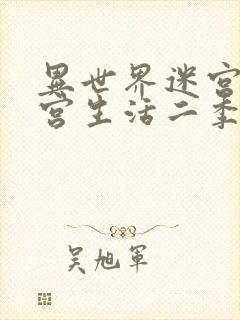 異世界迷宫
宫生活二季
吴旭军